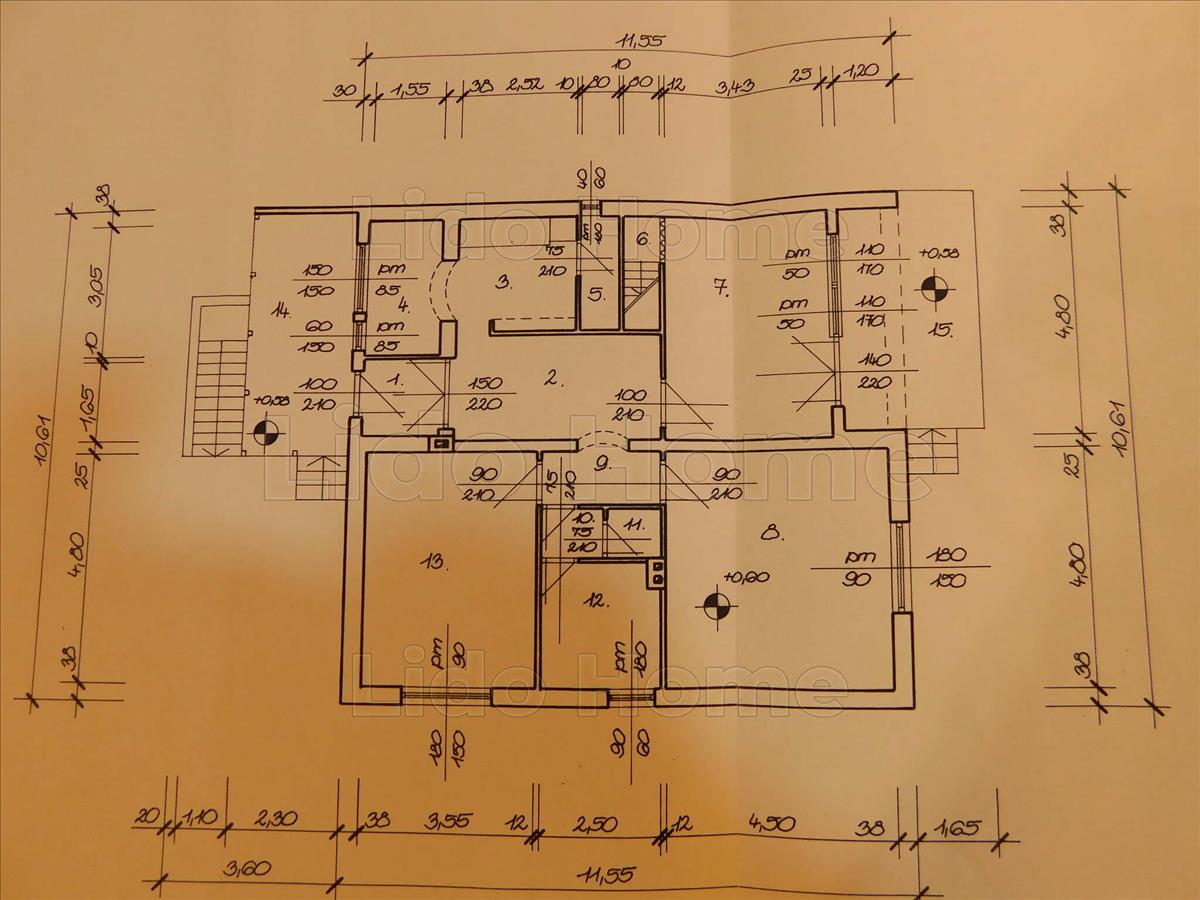 11,55
30 1,55 38 2,52 10 80 10 80 12 3,43 25 1,20
40 60
pm 180
Lido Home
38
3,05
10
1,65
25
4,80
38
10,61
150 150
pm 85
60 150
pm 85
100 210
14.
4.
3.
75 210
5.
6.
7.
pm 50
110 170
pm 50
110 170
140 220
+0,58
15.
+0,58
1.
150 220
2.
100 210
Lido Home
90 210
75 210
9.
90 210
10.
75 210
11.
8.
13.
12.
+0,60
pm 90
180 150
pm 90
pm 180
Lido Home
180 150
90 60
38
4,80
25
4,80
38
10,61
20 1,10 2,30 38 3,55 12 2,50 12 4,50 38 1,65
3,60 11,55